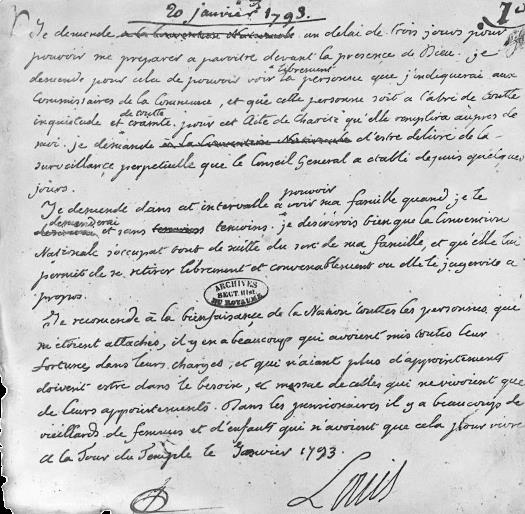 20 janvier 1793.
Je demande à la Convention Nationale un delai de trois jours pour
pouvoir me préparer a paroitre devant la presence de Dieu. je
demande pour cela de pouvoir voir librement la personne que j'indiquerai aux
Commissaires de la Commune, et que cette personne soit a l'abri de toutte
inquietude et de toutte crainte pour cet Acte de Charité qu'elle remplira aupres de
moi. je demande à la Convention Nationale d'estre delivré de la
surveillance perpetuelle que le Conseil General a etabli depuis quelques
jours.
Je demande dans cet intervalle a pouvoir voir ma famille quand je le
demanderai et sans temoins temoins. je desirerois bien que la Convention
Nationale s'occupat tout de suitte du sort de ma famille, et qu'elle lui
permit de se retirer librement et convenablement ou elle le jugeroit a
propos.
ARCHIVES
SECT. HIST.
DU ROYAUME
Je recomende à la bienfaisance de la Nation touttes les personnes qui
m'etoient attachés, il y en a beaucoup qui avoient mis toutes leur
fortune dans leurs charges, et qui n'aiant plus d'appointements
doivent estre dans le besoin, et mesme de celles qui ne vivoient que
de leurs appointements. Dans les pensionaires il y a beaucoup de
vieillards de femmes et d'enfants qui n'avoient que cela pour vivre
A la Tour du Temple le Janvier 1793.
Louis